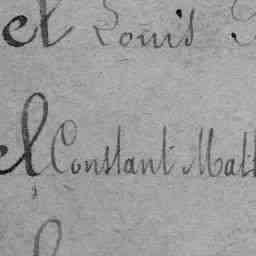 el Louis
el Constant Mat